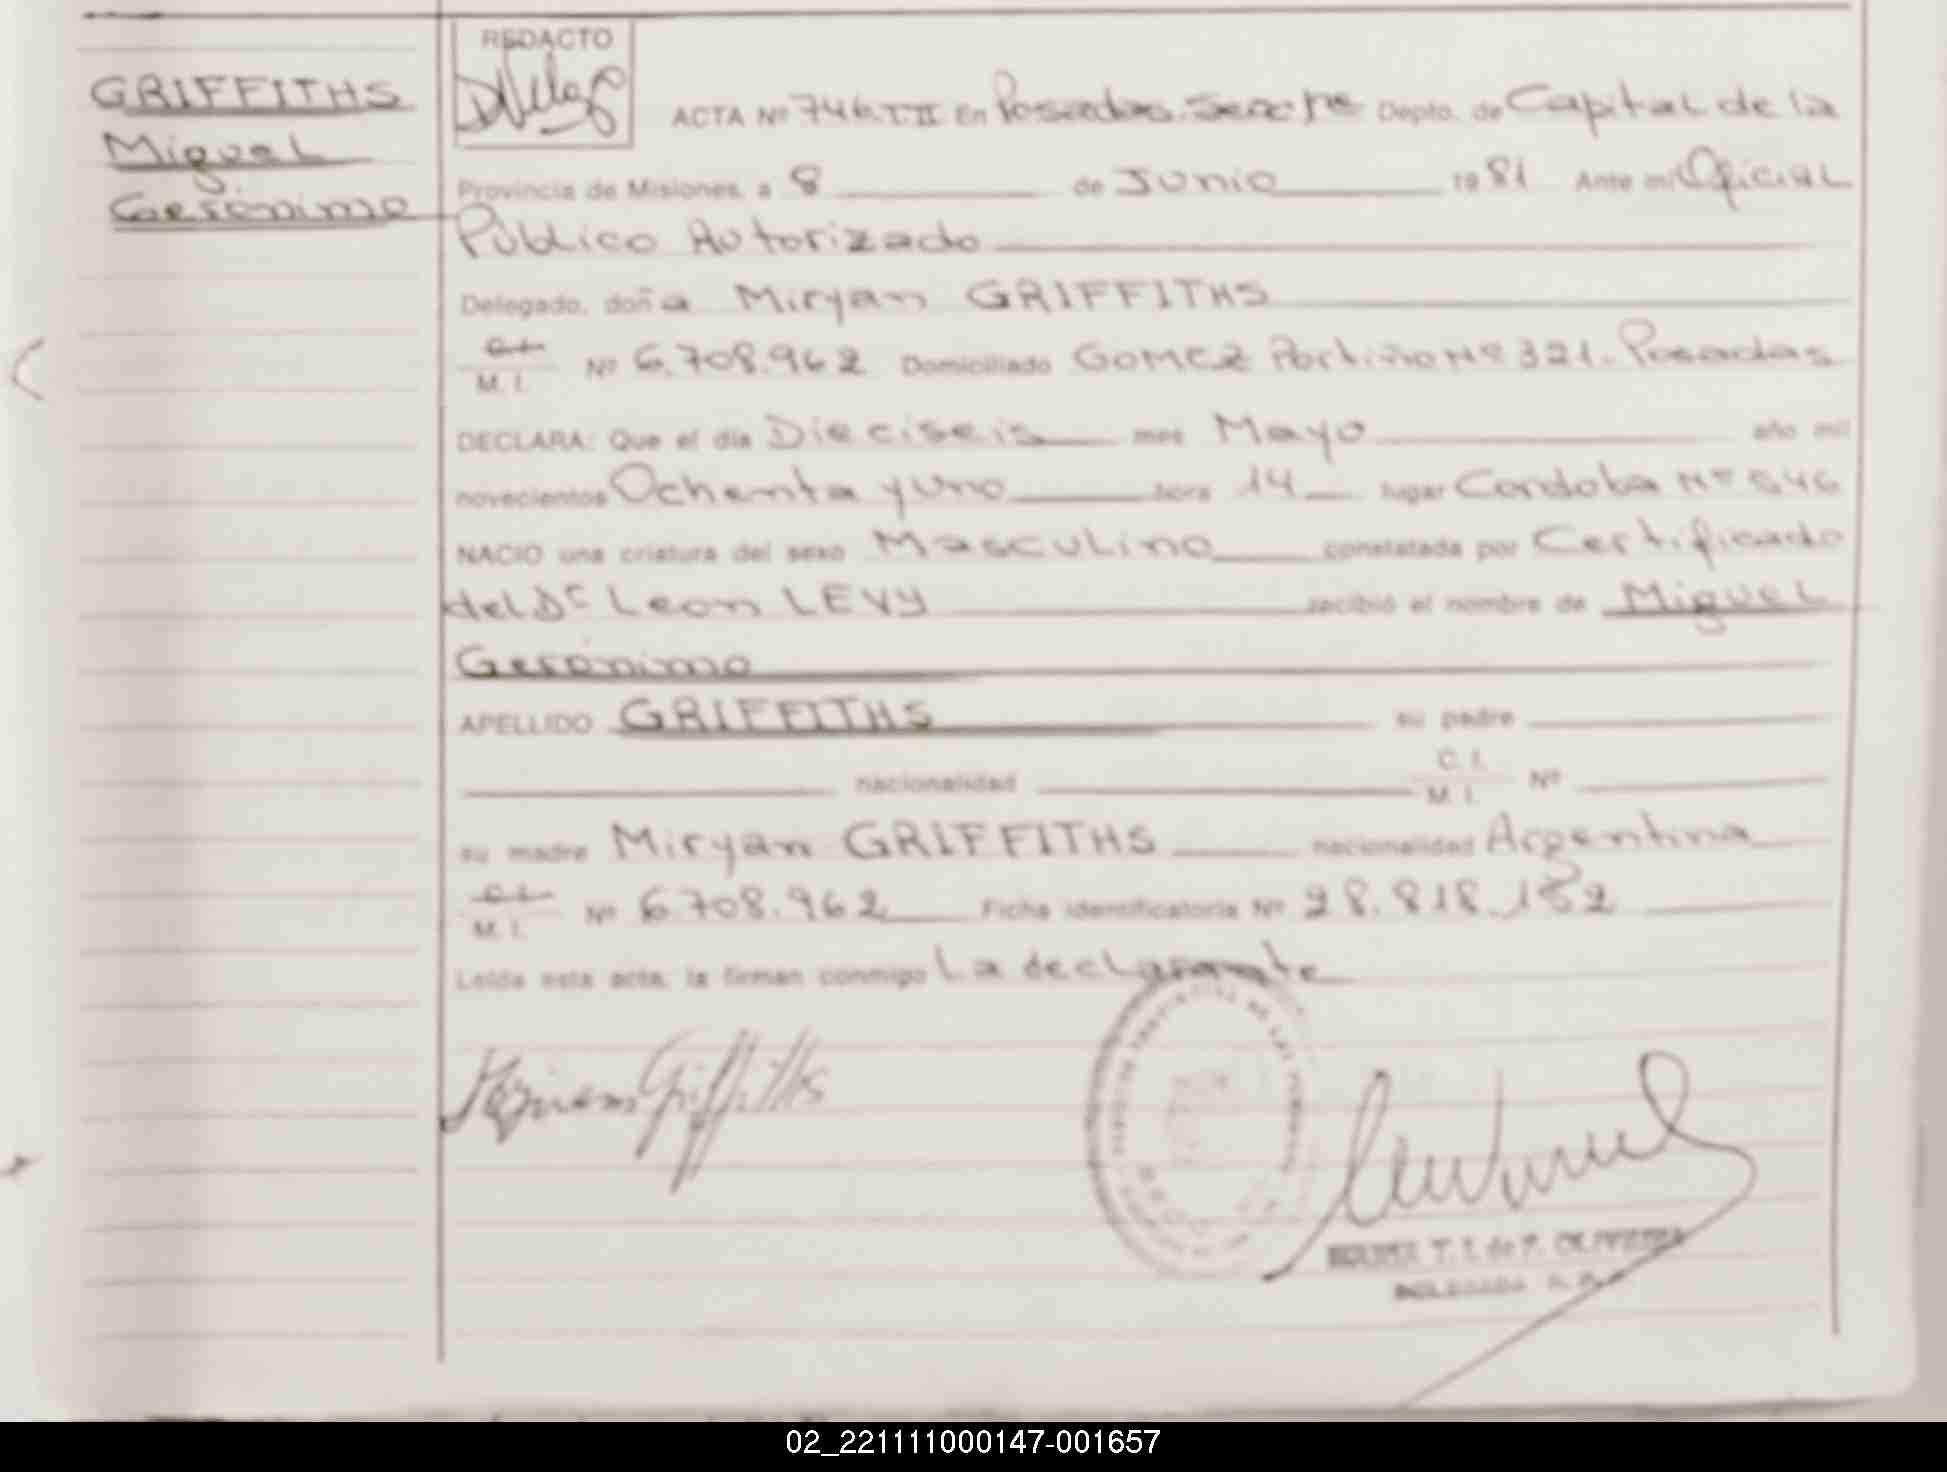 REDACTO
GRIFFITHS
Miguel
Gerónimo
ACTA Nº 746.T.II En Posadas. Depto. de Capital de la
Provincia de Misiones, a 8 de Junio 1981 Ante mí Oficial
Público Autorizado
Delegado, doña Miryan GRIFFITHS
C.I.
M. I. Nº 6.708.962 Domiciliado GOMEZ Portiño Nº 321. Posadas
DECLARA: Que el día Dieciseis mes Mayo año mil
novecientos Ochenta y Uno hora 14 lugar Cordoba Nº 546
NACIO una criatura del sexo Masculino constatada por Certificado
del Dr Leon LEVY recibió el nombre de Miguel
Gerónimo
APELLIDO GRIFFITHS su padre
nacionalidad C. I.
M. I. Nº
su madre Miryan GRIFFITHS nacionalidad Argentina
C.I.
M. I. Nº 6.708.962 Ficha identificatoria Nº 28.818.152
Leída esta acta, la firman conmigo La declarante
Griffiths
T. I. de P. OLIVEIRA
DELEGADA
02_221111000147-001657